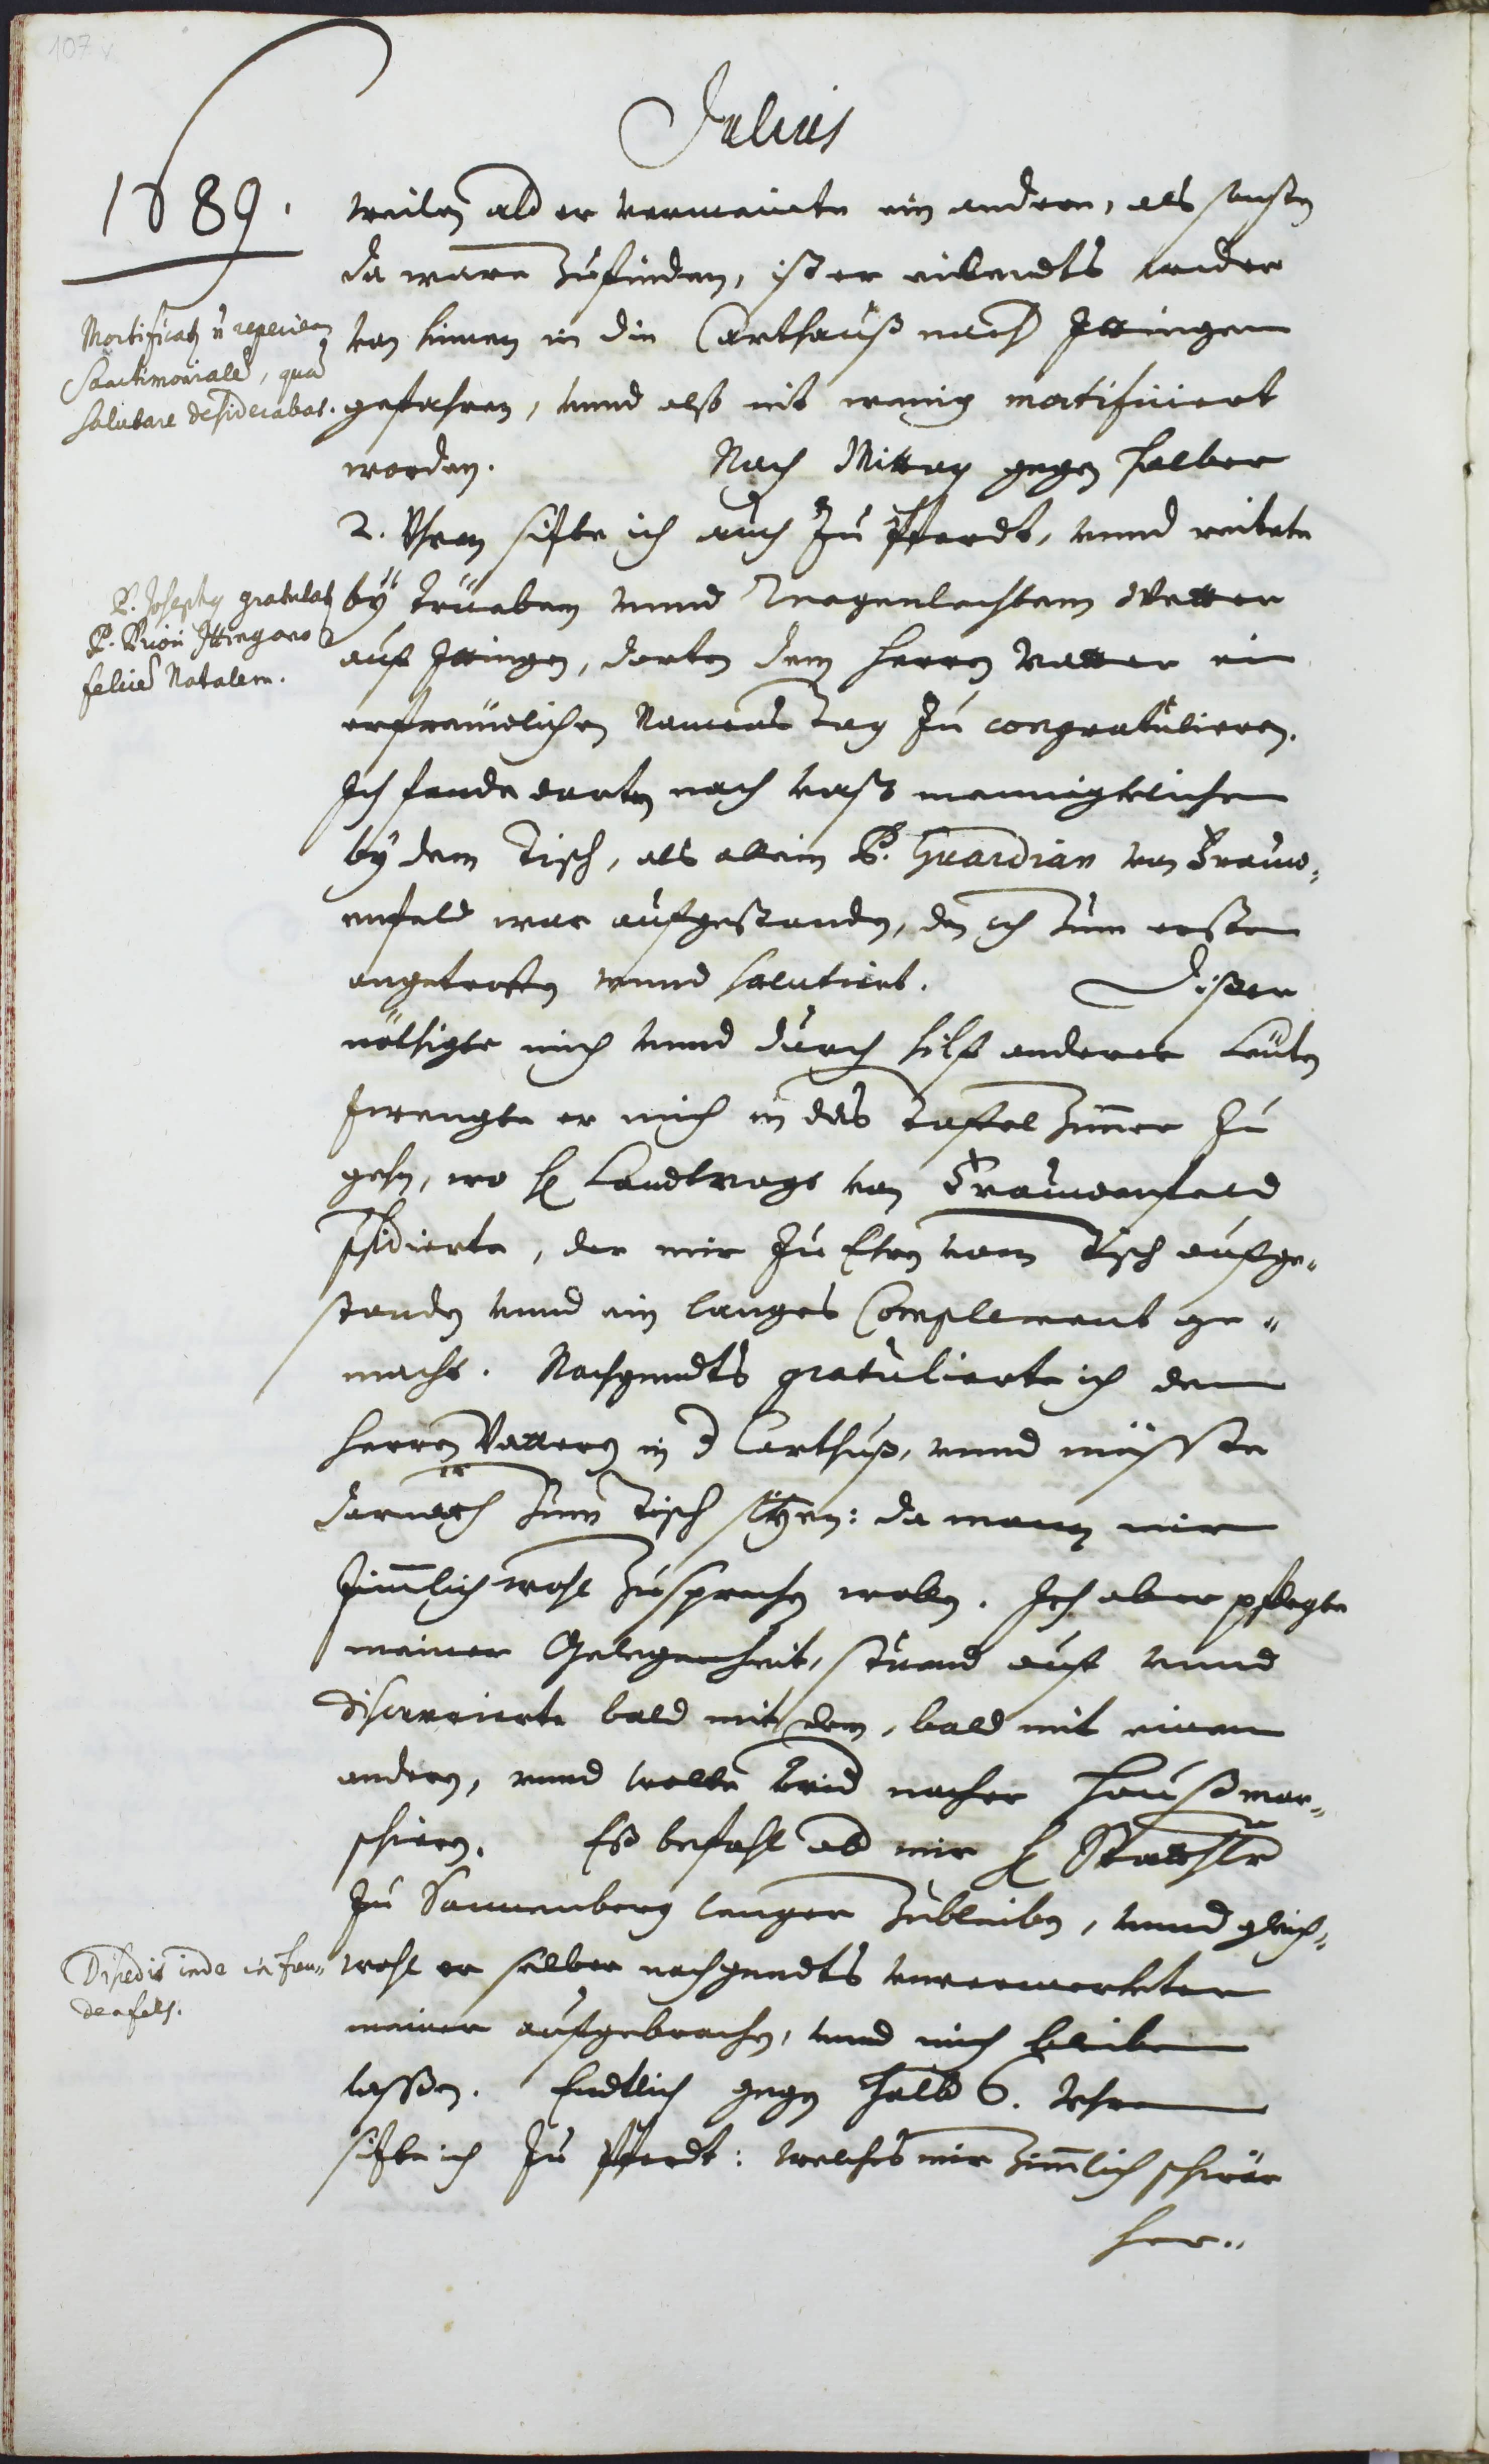 107 v
Julius
1689.
weilen ald er vermeinte ein andere, als sonsten
da ware zufinden, ist er eilendts wider
von hinnen in die Carthauß nach Ittingen
gefahren, vnnd alß nit wenig mortificiert
worden. Nach Mittag gegen halber
2. Vhren sitzte ich auch zu Pferdt, vnnd reitete
bÿ trüebem vnnd Regenlechtem Wetter
auf Ittingen, dorten dem Herren Vatter ein
erfreüwlichen Namens Tag zu congratulieren.
Ich fande dorten noch vast mennigklichen
bÿ dem Tisch, als allein P. Guardian von Frauw-
enfeld war aufgestanden, den ich zum ersten
angetroffen vnnd salutiert. Dißer
nöthigte mich vnnd durch hilf anderer Leüten
zwengte er mich in das Taffel Zimer zu
gehn, wo H. Landtvogt von Frauwenfeld
pſidierte, der mir zu Ehren vom Tisch aufge-
standen vnnd ein langes Complement ge-
macht. Nachgendts gratulierte ich dem
Herren Vatteren in d Carthuß, vnnd müsste
darnach zum Tisch sitzen: da mann mir
zimlich wohl zusprechen wollen. Ich aber pflegte
meiner Gelegenheit, stuend auf vnnd
discurrierte bald mit dem, bald mit einem
anderen, vnnd wolte wid nacher Hauß mar-
schieren. Eß befahl ab mir H. Statthlr
zu Sonnenberg lenger zubleiben, vnnd gleich-
wohl er selber nachgendts vnvermerkter
meiner aufgebrochen, vnnd mich bleiben
lassen. Endtlich gegen halb 6. Vhren
sitzte ich zu Pferdt: welches mir zimlich schwär
her-
Mortificatq n reperiens
Sanctimoniale, qua
salutare desiderabat.
P. Josephq gratulatq
P. Priori Ittingano
felice Natalem.
Discedit inde in Freu-
denfels.